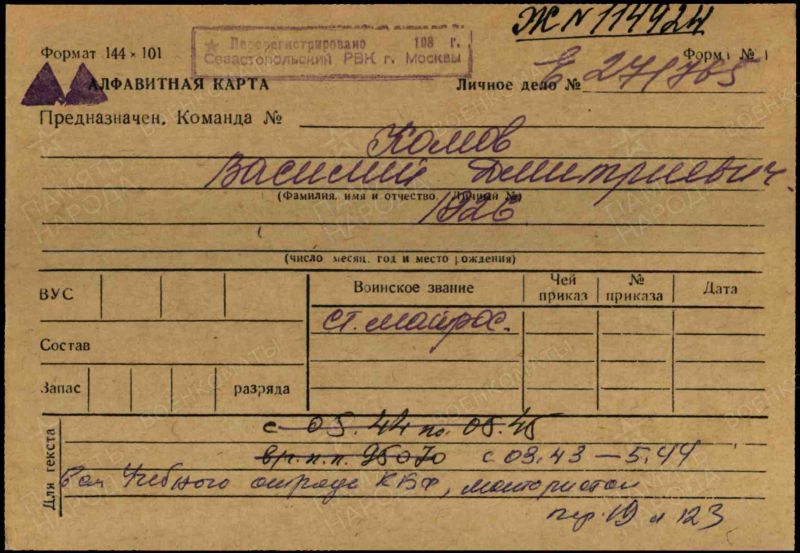 Ж № 114924
Перерегистрировано 198 г.
Севастопольский РВК г. Москвы
Формат 144×101
Форма № 1
АЛФАВИТНАЯ КАРТА
Личное дело № Е 271765
Предназначен, Команда №
Комов
Василий Дмитриевич
(Фамилия, имя и отчество, Личный №)
1926
(число, месяц, год и место рождения)
ВУС
Воинское звание
Чей приказ
№ приказа
Дата
ст. матрос.
Состав
Запас
разряда
Для текста
с 05.44 по 05.45
в/ч п.п. 95070 с 03.43 – 5.44
Учебного отряда КБФ, мотористом
19 л 123
ПАМЯТЬ НАРОДА
ВОЕНКОМАТЫ